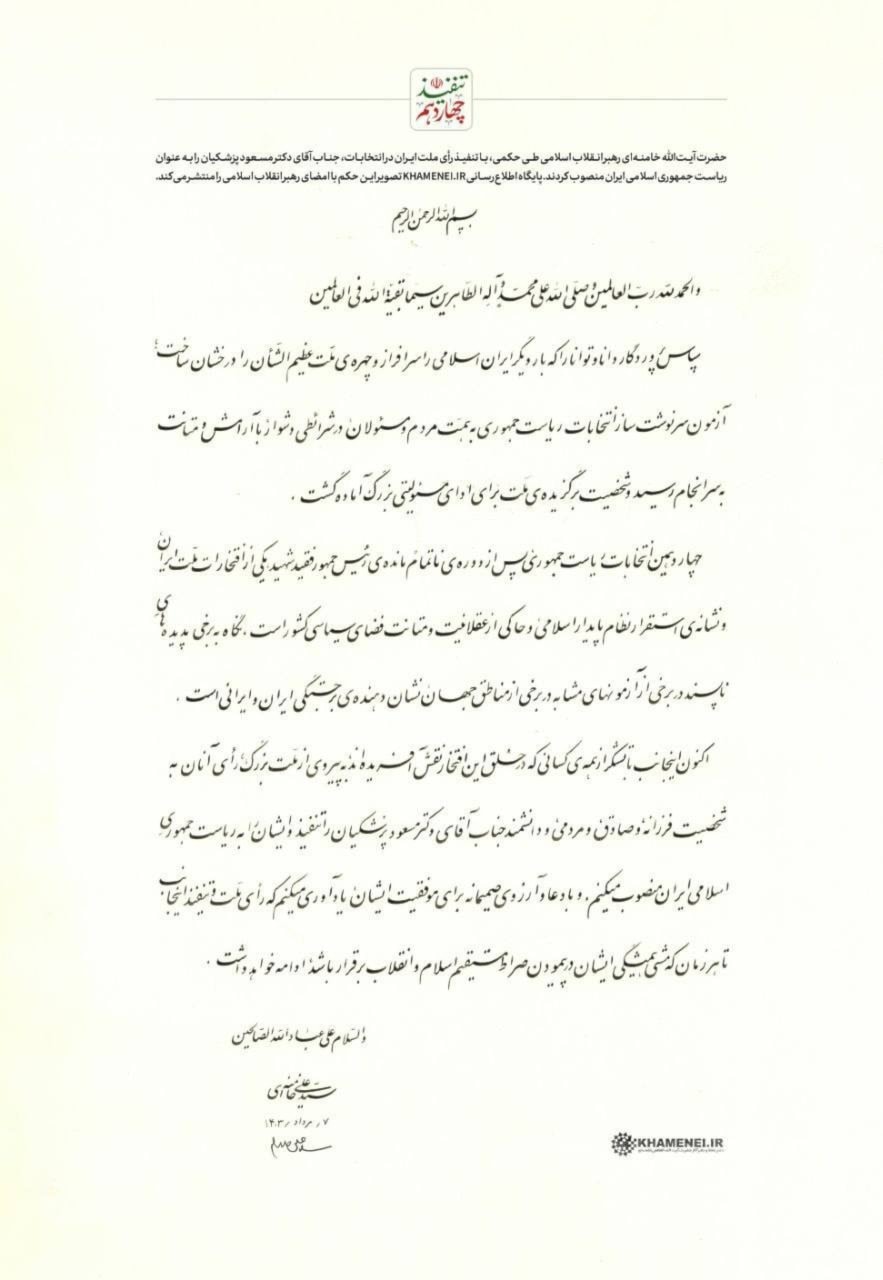 تنفیذ
چهاردهم
حضرت آیت‌الله خامنه‌ای رهبر انقلاب اسلامی طی حکمی، با تنفیذ رأی ملت ایران در انتخابات، جناب آقای دکتر مسعود پزشکیان را به عنوان
ریاست جمهوری اسلامی ایران منصوب کردند. پایگاه اطلاع رسانی KHAMENEI.IR تصویر این حکم با امضای رهبر انقلاب اسلامی را منتشر می‌کند.
بسم الله الرحمن الرحیم
والحمدلله ربّ العالمین و صلّی الله علی محمّد و آله الطّاهرین سیّما بقیّة الله فی العالمین
سپاس پروردگار دانا و توانا را که بار دیگر ایران اسلامی را سرافراز و چهره‌ی ملّت عظیم الشّأن را درخشان ساخت؛
آزمون سرنوشت ساز انتخابات ریاست جمهوری به همّت مردم و مسئولان در شرائطی دشوار با آرامش و متانت
به سرانجام رسید و شخصیت برگزیده‌ی ملّت برای ادای مسئولیتی بزرگ آماده گشت .
چهاردهمین انتخابات ریاست جمهوری پس از دوره‌ی ناتمام مانده‌ی رئیس جمهور فقید شهید یکی از افتخارات ملّت ایران
و نشانه‌ی استقرار نظام پایدار اسلامی و حاکی از عقلانیت و متانت فضای سیاسی کشور است . نگاه به برخی پدیده‌های
ناپسند در برخی از آزمونهای مشابه در برخی از مناطق جهان نشان دهنده‌ی برجستگی ایران و ایرانی است .
اکنون اینجانب با تشکّر از همه‌ی کسانی که در خلق این افتخار نقش آفریده اند به پیروی از ملّت بزرگ رأی آنان به
شخصیت فرزانه و صادق و مردمی و دانشمند جناب آقای دکتر مسعود پزشکیان را تنفیذ و ایشان را به ریاست جمهوری
اسلامی ایران منصوب میکنم . و با دعا و آرزوی صمیمانه برای موفقیت ایشان یادآوری میکنم که رأی ملّت و تنفیذ اینجانب
تا هر زمان که مشی همیشگی ایشان در پیمودن صراط مستقیم اسلام و انقلاب برقرار باشد ادامه خواهد داشت .
والسّلام علی عباد الله الصّالحین
سیّد علی خامنه‌ای
۷ / مرداد / ۱۴۰۳
KHAMENEI.IR